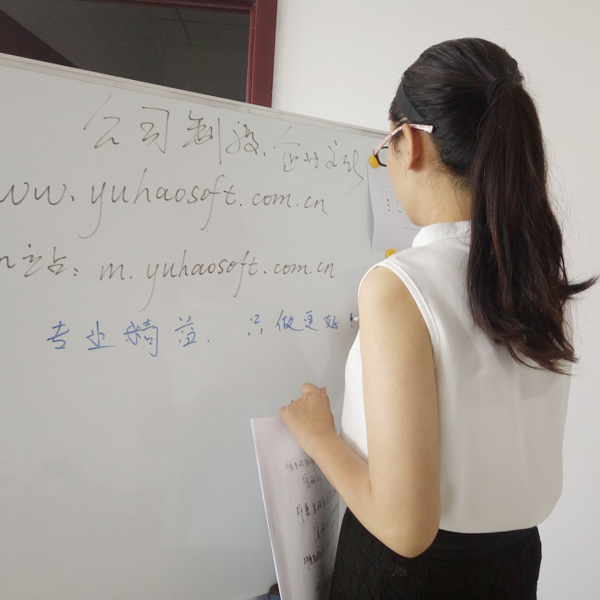 公司制度、企业文化
www.yuhaosoft.com.cn
m站：m.yuhaosoft.com.cn
专业精益．只做更好！